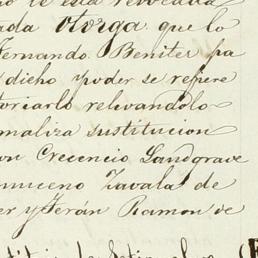 no le está revocada
ada otorga que lo
Fernando Benites pa
dicho poder se refiere
torearlo relevandolo
rmaliza sustitucion
on Crecencio Landgrave
omuceno Zavala de
er y Terán Ramon de